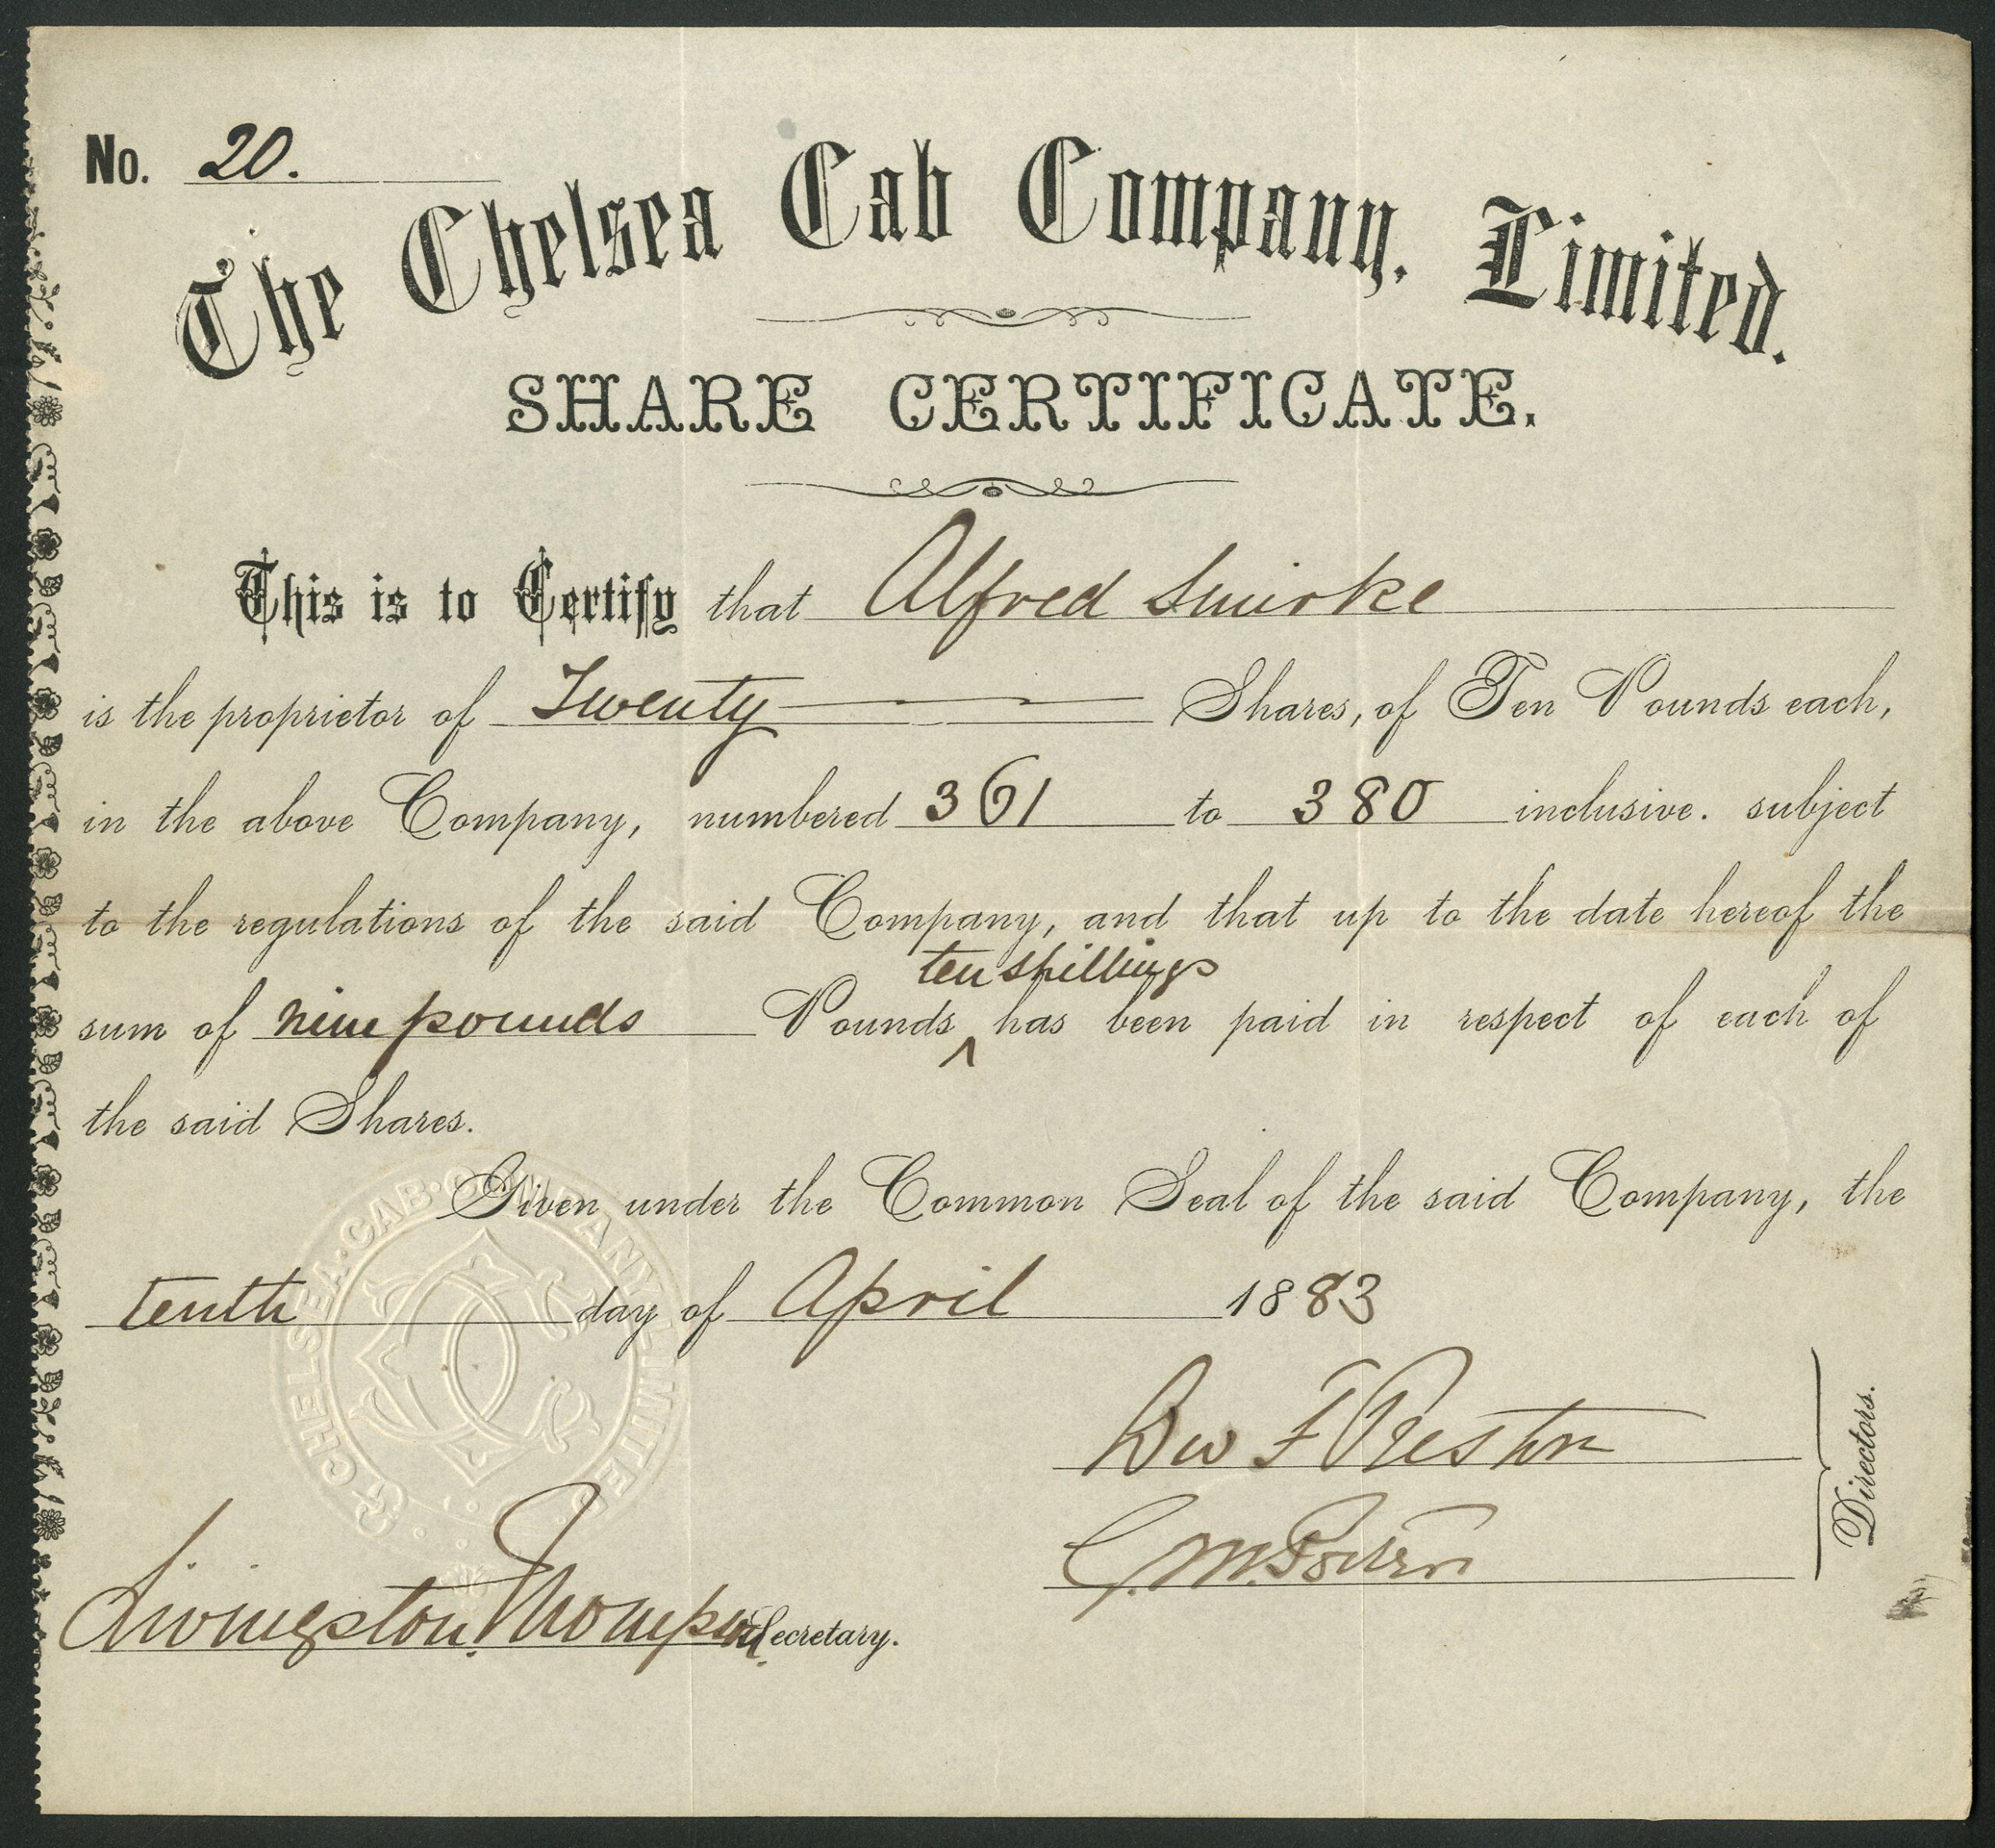 No. 20.
The Chelsea Cab Company, Limited.
SHARE CERTIFICATE.
This is to Certify that Alfred Smirke
is the proprietor of Twenty Shares, of Ten Pounds each,
in the above Company, numbered 361 to 380 inclusive. subject
to the regulations of the said Company, and that up to the date hereof the
ten shillings
sum of nine pounds Pounds ^ has been paid in respect of each of
the said Shares.
Given under the Common Seal of the said Company, the
tenth day of April 1883
CHELSEA·CAB·COMPANY·LIMITED
F Preston
Directors.
Livingston Thompson Secretary.